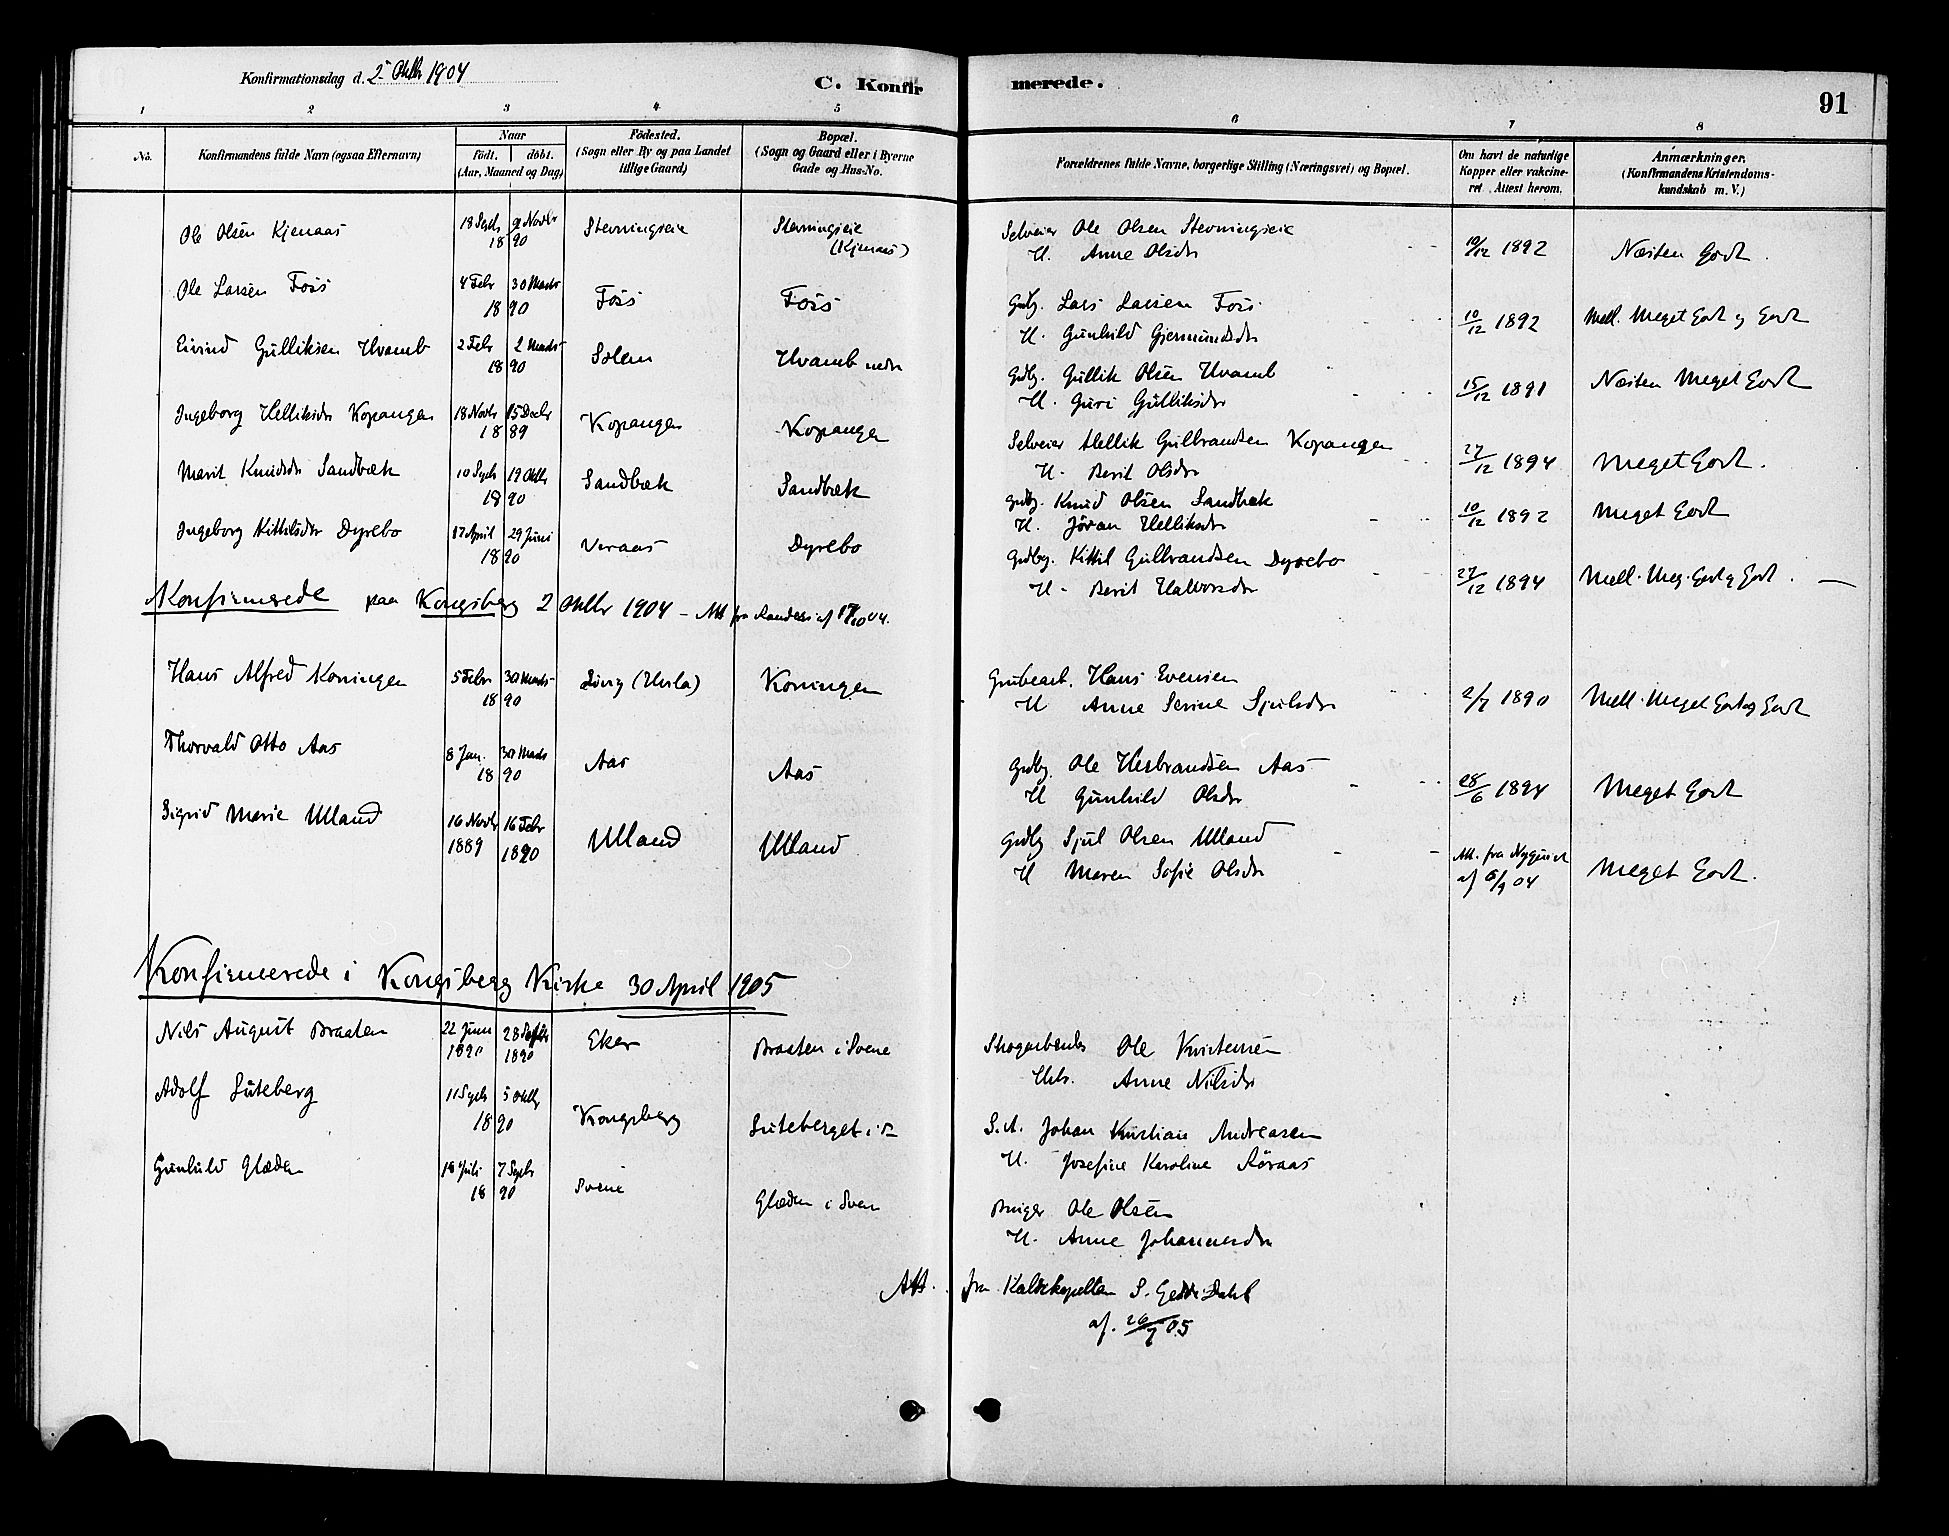 Konfirmationsdag d. 2 Oktbr 1904
C. Konfirmerede.
91
1 2 3 4 5 6 7 8
No. Konfirmandens fulde Navn (ogsaa Efternavn) Naar født. døbt. (Aar, Maaned og Dag) Födested. (Sogn eller By og paa Landet tillige Gaard) Bopæl. (Sogn og Gaard eller i Byerne Gade og Hus-No. Forældrenes fulde Navne, borgerlige Stilling (Næringsvei) og Bopæl. Om havt de naturlige Kopper eller vakcineret. Attest herom. Anmærkninger. (Konfirmandens Kristendomskundskab m. V.)
Ole Olsen Kjenaas 18 Septr 9 Novbr 1890 Stevningseie Stevningseie (Kjenaas) Selveier Ole Olsen Stevningseie
H. Anne Olsdr 10/12 1892 Næsten Godt.
Ole Larsen Foss 4 Febr 30 Marts 1890 Foss Foss Grdbg. Lars Larsen Foss
H. Gunhild Gjermundsdr 10/12 1892 Mell. Meget Godt og Godt
Eivind Gulliksen Hvamb 2 Febr 2 Marts 1890 Solem Hvamb nedr Grdbg. Gullik Olsen Hvamb
H. Guri Gulliksdr 15/12 1891 Næsten Meget Godt
Ingeborg Helliksdr Kopangen 18 Novbr 15 Decbr 1889 Kopangen Kopangen Selveier Hellik Gulbrandsen Kopangen
H. Berit Olsdr 27/12 1894 Meget Godt.
Marit Knudsdr Sandbæk 10 Septr 19 Oktbr 1890 Sandbæk Sandbæk Grdbg. Knud Olsen Sandbæk
H. Jöran Helliksdr 10/12 1892 Meget Godt
Ingeborg Kittilsdr Dyrebo 17 April 29 Juni 1890 Veraas Dyrebo Grdbg. Kittil Gulbrandsen Dyrebo
H. Berit Halvorsdr 27/12 1894 Mell. Meg. Godt og Godt.
Konfirmerede paa Kongsberg 2 Oktbr 1904 – Att fra Randers af 17/10 04.
Hans Alfred Koningen 5 Febr 30 Marts 1890 Koningen Grubearb. Hans Evensen
H Anne Serine Sjulsdr 2/7 1890 Mell. Meget Godt og Godt
Thorvald Otto Aas 8 Jan. 30 Marts 1890 Aas Aas Grdbg. Ole Herbrandsen Aas
H Gunhild Olsdr 28/6 1894 Meget Godt
Sigrid Marie Ulland 16 Novbr 1889 16 Febr 1890 Ulland Ulland Grdbg Sjul Olsen Ulland
H Maren Sofie Olsdr Att. fra af 6/9 04 Meget Godt.
Konfirmerede i Kongsberg Kirke 30 April 1905
Nils August Braaten 22 Juni 1890 28 Septbr 1890 Eker Braaten i Svene Skogarbeider Ole Kristensen
Hstr. Anne Nilsdr
Adolf Luteberg 11 Septr 5 Oktbr 1890 Kongsberg Luteberget i S. A. Johan Kristian Andreasen
H. Josefine Karoline Röraas
Gunhild Glæden 18 Juli 7 Septbr 1890 Svene Glæden i Svene Bruger Ole Olsen
H. Anne Johannesdr
Att. fra Kaldskapellan S. Gedde Dahl
af. 26/7 05